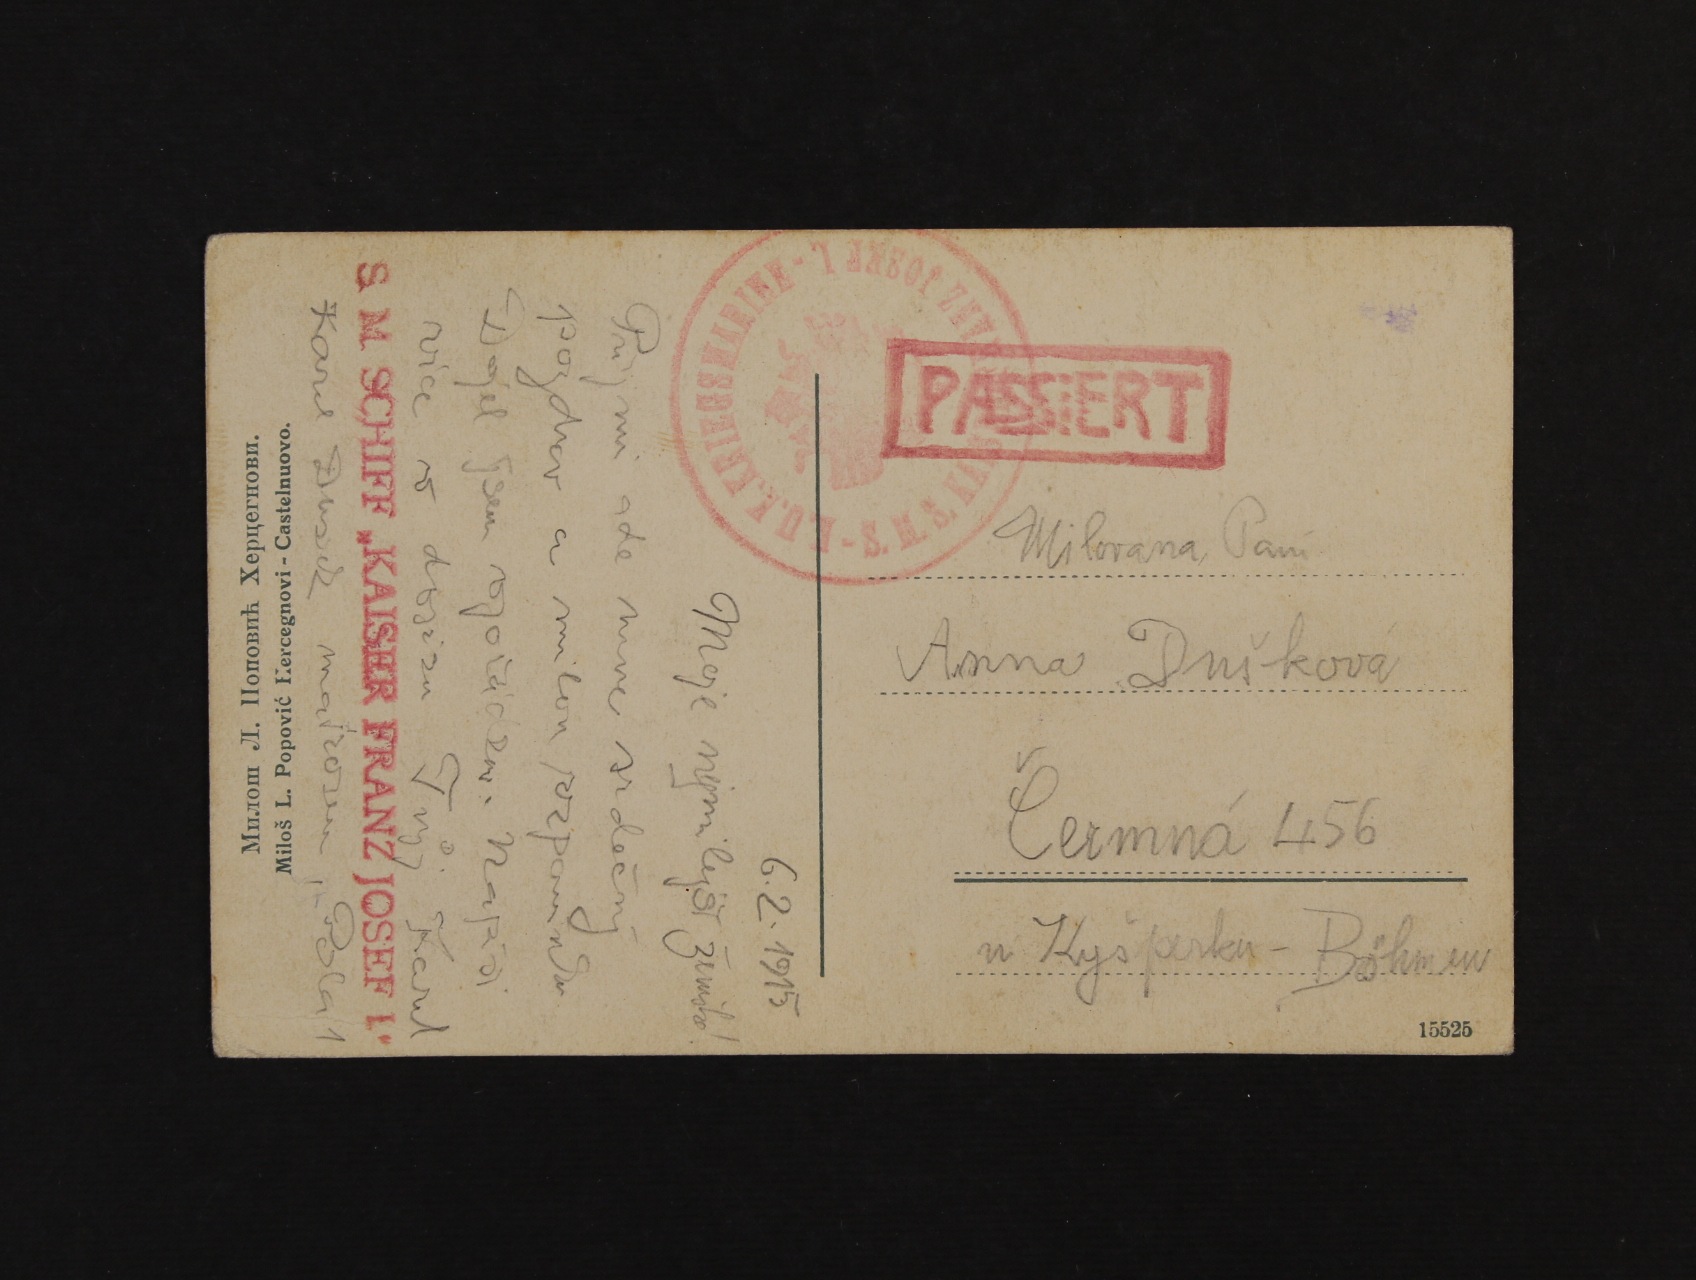 6.2.1915
Moje nejmilejší ženuško!
Přijmi ode mne srdečný
pozdrav a milou vzpomínku
Dojel jsem v pořádku. Napíši
více v dopisu Tvůj Karel
Karel Dušek matrosen Pola 1
S. M. SCHIFF „KAISER FRANZ JOSEF I"
Милош Л. Поповић Херцегнови.
Miloš L. Popović Hercegnovi - Castelnuovo.
K.U.K. KRIEGSMARINE - S.M.S. KAISER FRANZ JOSEF I.
PASSIERT
Milovaná Paní
Anna Dušková
Čermná 456
u Kyšperku - Böhmen
15525